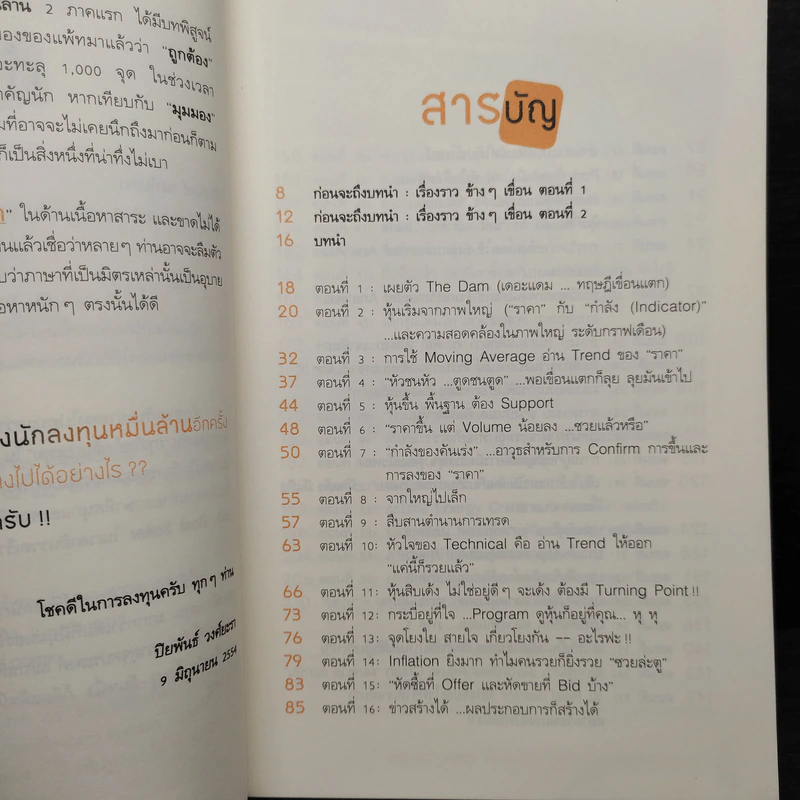 นล้าน 2 ภาคแรก ได้มีบทพิสูจน์
องของแพ้ทมาแล้วว่า "ถูกต้อง"
จะทะลุ 1,000 จุด ในช่วงเวลา
าคัญนัก หากเทียบกับ "มุมมอง"
มที่อาจจะไม่เคยนึกถึงมาก่อนก็ตาม
ก็เป็นสิ่งหนึ่งที่น่าทึ่งไม่เบา
" ในด้านเนื้อหาสาระ และขาดไม่ได้
านแล้วเชื่อว่าหลายๆ ท่านอาจจะลืมตัว
บว่าภาษาที่เป็นมิตรเหล่านั้นเป็นอุบาย
อหาหนักๆ ตรงนั้นได้ดี
งนักลงทุนหมื่นล้านอีกครั้ง
างไปได้อย่างไร ??
ครับ !!
โชคดีในการลงทุนครับ ทุกๆ ท่าน
ปิยพันธ์ วงศ์ยะรา
9 มิถุนายน 2554
สารบัญ
8 ก่อนจะถึงบทนำ : เรื่องราว ข้างๆ เขื่อน ตอนที่ 1
12 ก่อนจะถึงบทนำ : เรื่องราว ข้างๆ เขื่อน ตอนที่ 2
16 บทนำ
18 ตอนที่ 1 : เผยตัว The Dam (เดอะแดม ... ทฤษฎีเขื่อนแตก)
20 ตอนที่ 2 : หุ้นเริ่มจากภาพใหญ่ ("ราคา" กับ "กำลัง (Indicator)"
...และความสอดคล้องในภาพใหญ่ ระดับกราฟเดือน)
32 ตอนที่ 3 : การใช้ Moving Average อ่าน Trend ของ "ราคา"
37 ตอนที่ 4 : "หัวชนหัว ...ตูดชนตูด" ...พอเขื่อนแตกก็ลุย ลุยมันเข้าไป
44 ตอนที่ 5 : หุ้นขึ้น พื้นฐาน ต้อง Support
48 ตอนที่ 6 : "ราคาขึ้น แต่ Volume น้อยลง ...ซวยแล้วหรือ"
50 ตอนที่ 7 : "กำลังของคันเร่ง" ...อาวุธสำหรับการ Confirm การขึ้นและ
การลงของ "ราคา"
55 ตอนที่ 8 : จากใหญ่ไปเล็ก
57 ตอนที่ 9 : สืบสานตำนานการเทรด
63 ตอนที่ 10: หัวใจของ Technical คือ อ่าน Trend ให้ออก
"แค่นี้ก็รวยแล้ว"
66 ตอนที่ 11: หุ้นสิบเด้ง ไม่ใช่อยู่ดีๆ จะเด้ง ต้องมี Turning Point!!
73 ตอนที่ 12: กระบี่อยู่ที่ใจ ...Program ดูหุ้นก็อยู่ที่คุณ... หุ หุ
76 ตอนที่ 13: จุดโยงใย สายใจ เกี่ยวโยงกัน -- อะไรฟะ!!
79 ตอนที่ 14: Inflation ยิ่งมาก ทำไมคนรวยก็ยิ่งรวย "ซวยล่ะตู"
83 ตอนที่ 15: "หัดซื้อที่ Offer และหัดขายที่ Bid บ้าง"
85 ตอนที่ 16: ข่าวสร้างได้ ...ผลประกอบการก็สร้างได้